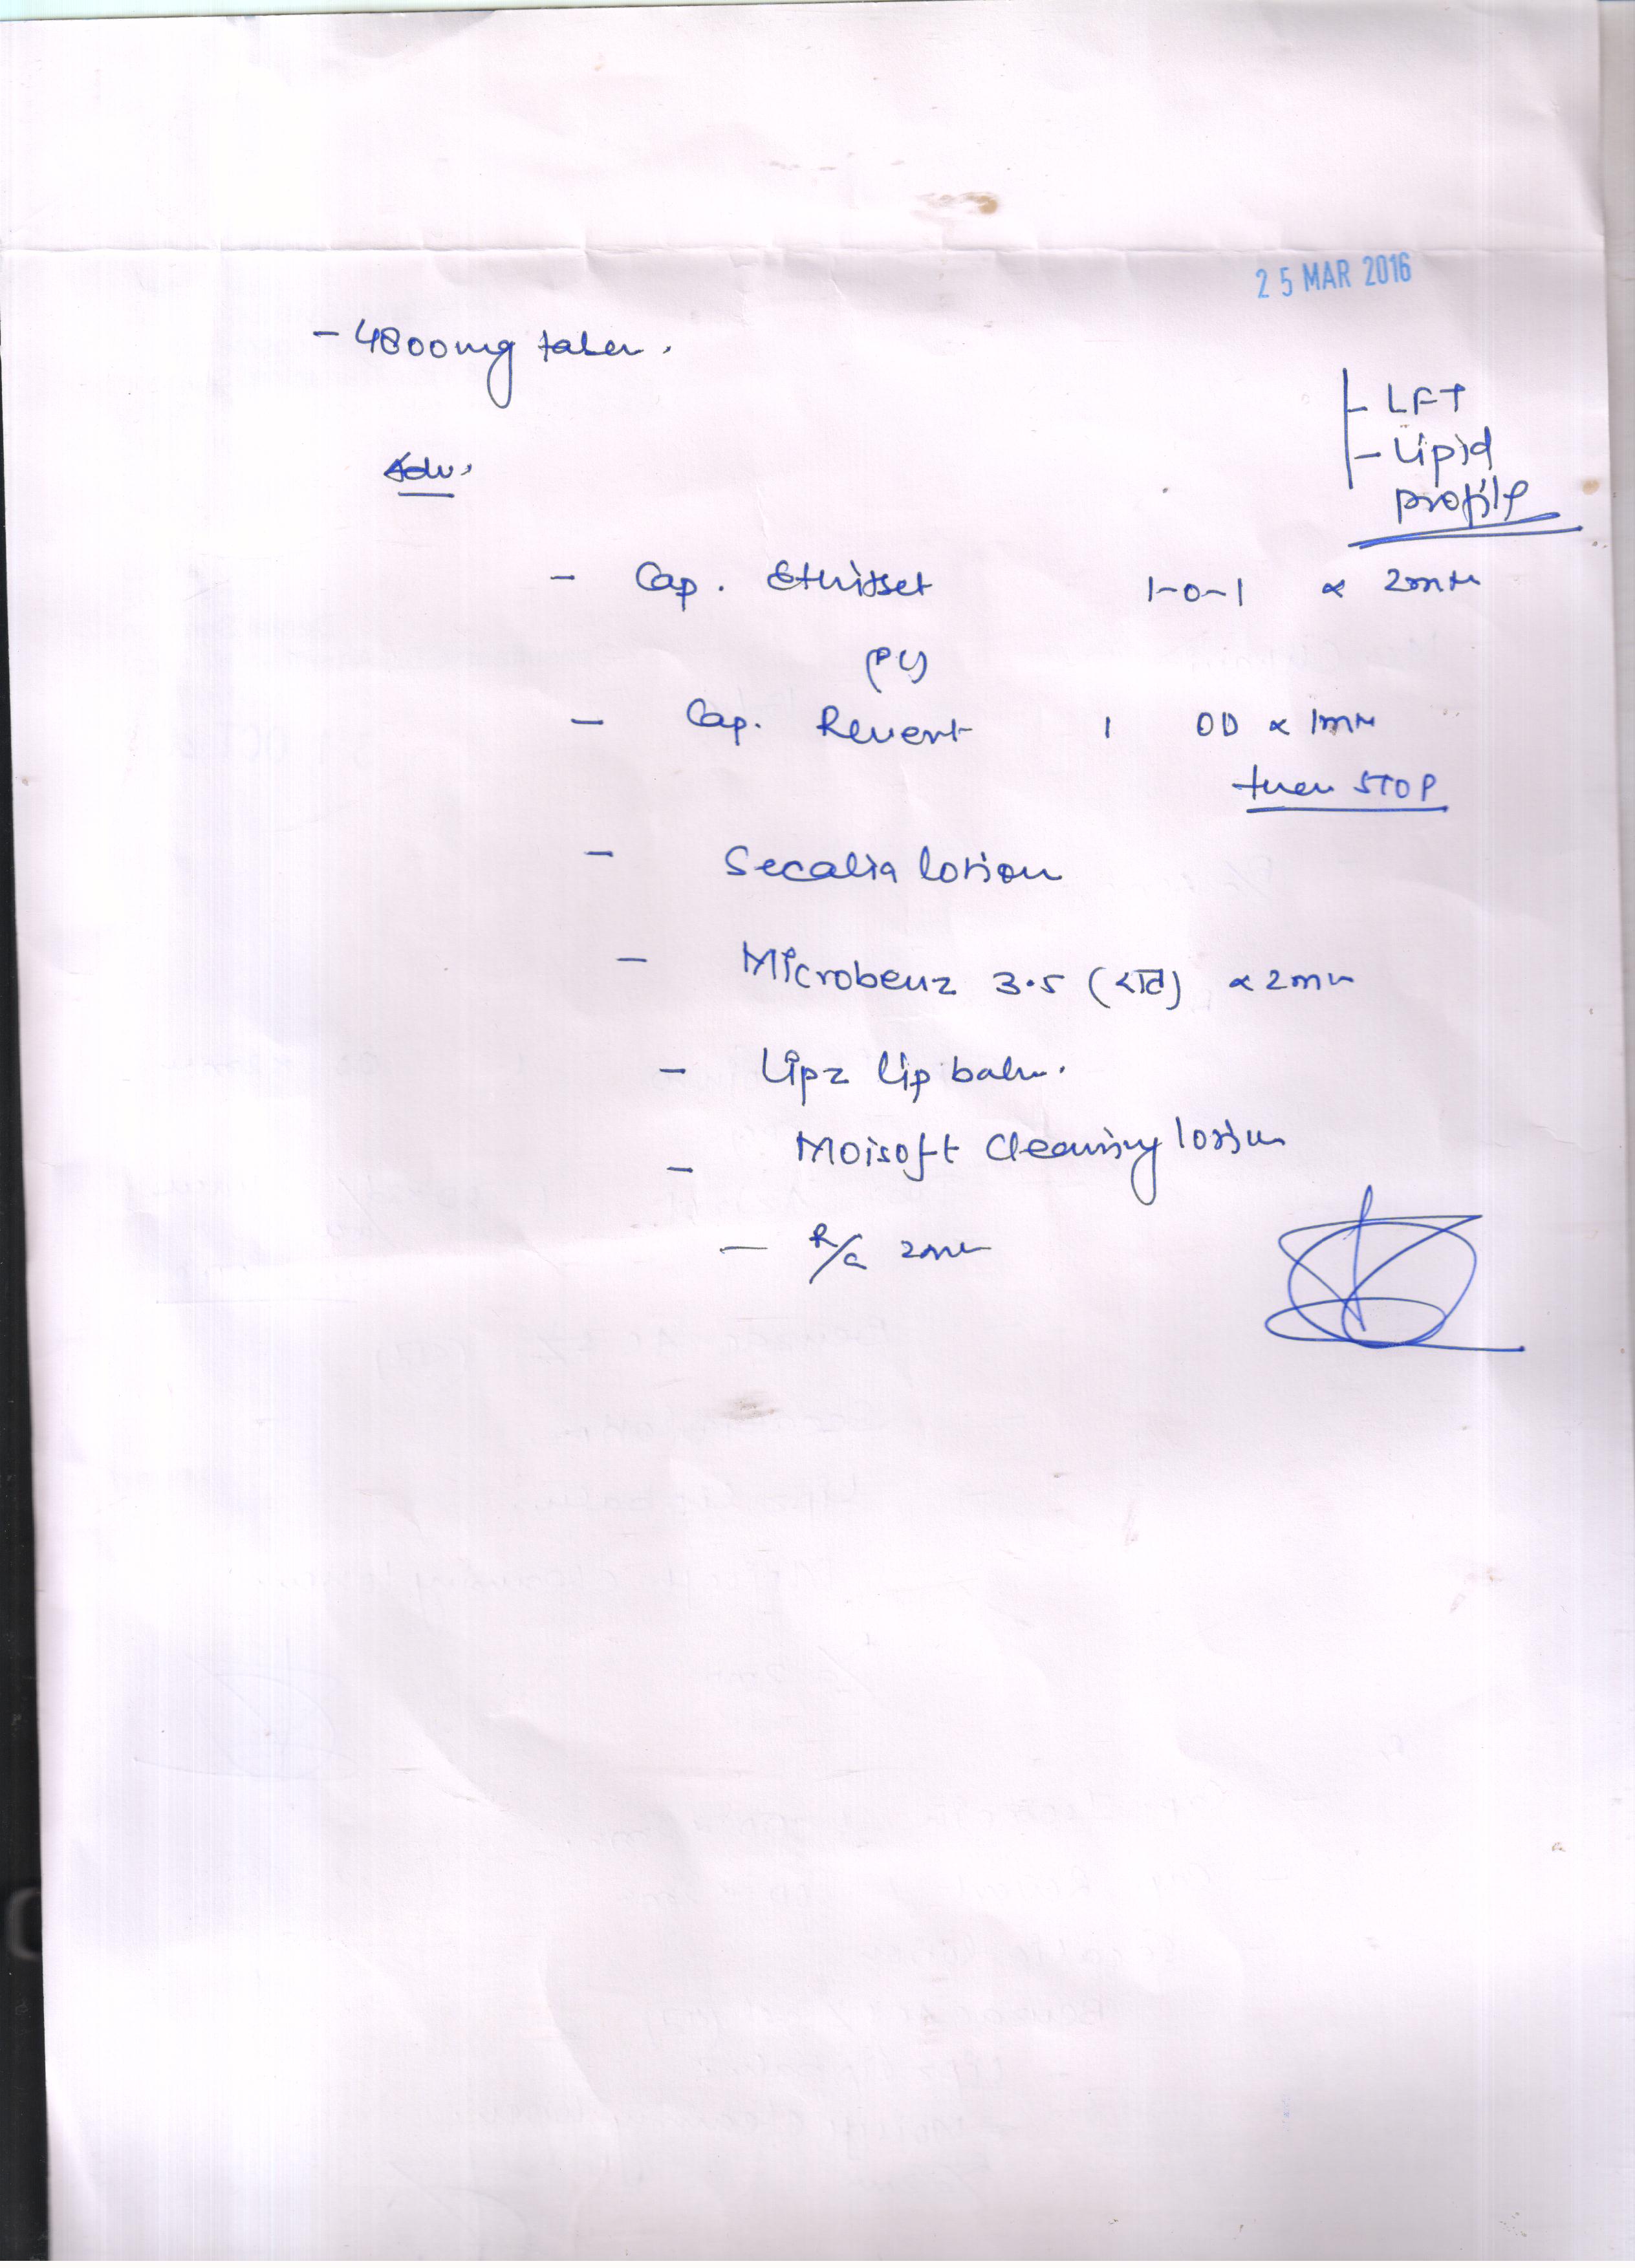 25 MAR 2016
- 4800mg taken.
- LFT
- Lipid
profile
Adv.
- Cap. 1-0-1 x 2mth
- Cap. Revert 1 OD x 1mth
then STOP
- Secalia lotion
- Microbenz 3.5 (रात) x 2mth
- Lipz lip balm.
- Moisoft Cleansing lotion
- R/c 2mth